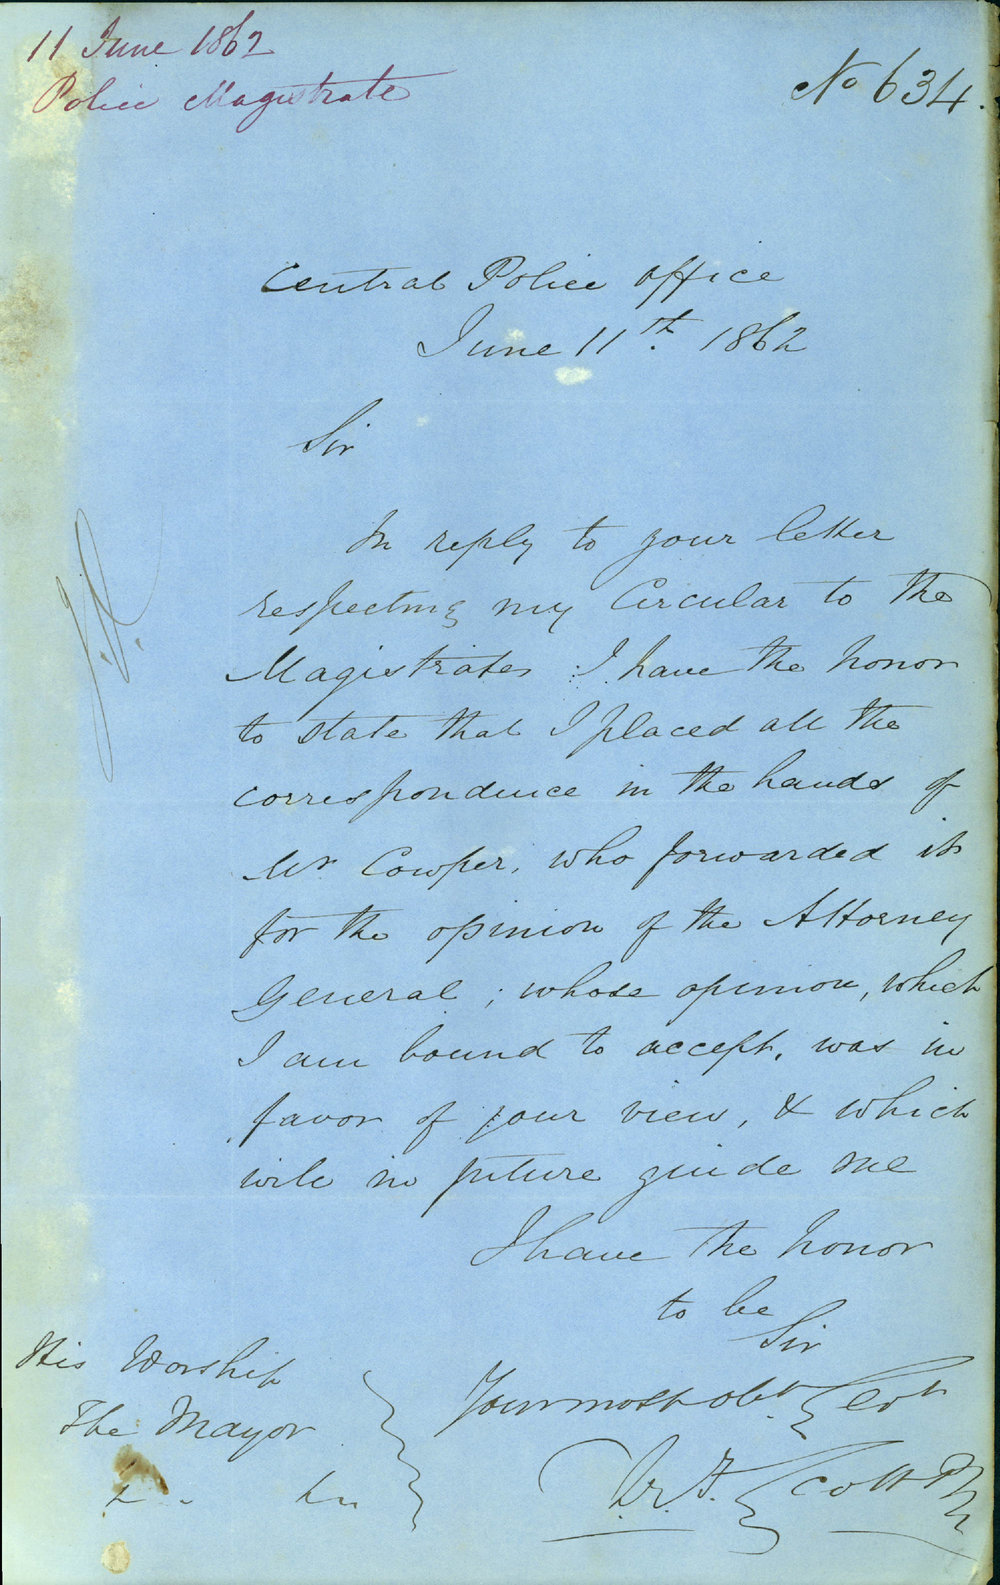 11 June 1862
Police Magistrate
No 634.
Central Police Office
June 11th. 1862
Sir
In reply to your letter
respecting my Circular to the
Magistrates I have the honor
to state that I placed all the
correspondence in the hands of
Mr Cowper, who forwarded it
for the opinion of the Attorney
General; whose opinion, which
I am bound to accept, was in
favor of your view, & which
will in future guide me
I have the honor
to be
Sir
Your most obt Sevt
Scott PM
His Worship
The Mayor